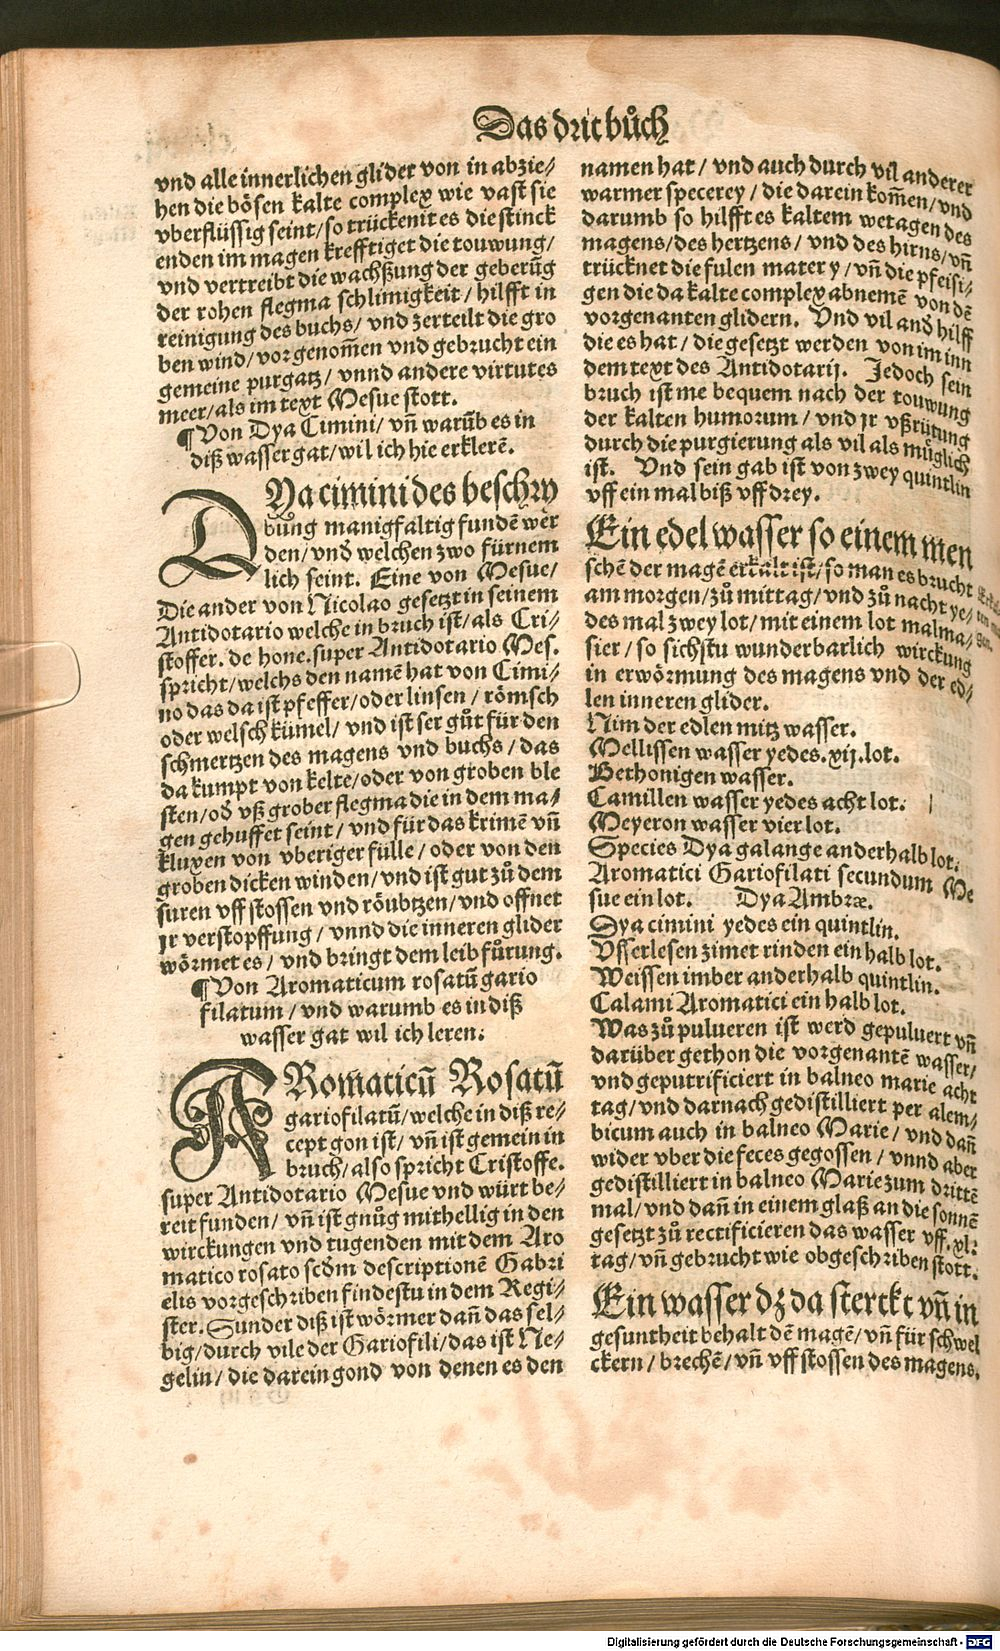 Das drit bůch
vnd alle innerlichen glider von in abzie⸗
hen die bösen kalte complex wie vast sie
vberflüssig seint/so trückenit es die stinck
enden im magen krefftiget die touwung/
vnd vertreibt die wachßung der geberūg
der rohen flegma schlimigkeit/hilfft in
reinigung des buchs/vnd zerteilt die gro
ben wind/vorgenom̄en vnd gebrucht ein
gemeine purgatz/vnnd andere virtutes
meer/als im text Mesue stott.
¶Von Dya Cimini/vn̄ warūb es in
diß wasser gat/wil ich hie erklerē.
DYa cimini des beschry
bung manigfaltig fundē wer
den/vnd̄ welchen zwo fürnem
lich seint. Eine von Mesue/
Die ander von Nicolao gesetzt in seinem
Antidotario welche in bruch ist/als Cri⸗
stoffer. de hone. super Antidotario Mes.
spricht/welchs den namē hat von Cimi⸗
no das da ist pfeffer/oder linsen/römsch
oder welsch kümel/vnd ist ser gůt für den
schmertzen des magens vnd buchs/das
da kumpt von kelte/oder von groben ble
sten/od̄ vß grober flegma die in dem ma⸗
gen gehuffet seint/vnd für das krimē vn̄
kluxen von vberiger fülle/oder von den
groben dicken winden/vnd ist gut zů dem
suren vff stossen vnd röubtzen/vnd offnet
jr verstopffung/vnnd die inneren glider
wörmet es/vnd bringt dem leib fůrung.
¶Von Aromaticum rosatū gario
filatum/vnd warumb es in diß
wasser gat wil ich leren.
ARomaticū Rosatū
gariofilatū/welche in diß re⸗
cept gon ist/vn̄ ist gemein in
bruch/also spricht Cristoffe.
super Antidotario Mesue vnd würt be⸗
reit funden/vn̄ ist gnůg mithellig in den
wirckungen vnd tugenden mit dem Aro
matico rosato scdm descriptionē Gabri
elis vorgeschriben findestu in dem Regi⸗
ster. Sunder diß ist wörmer dan̄ das sel⸗
big/durch vile der Gariofili/das ist Ne⸗
gelin/die darein gond von denen es den
namen hat/vnd auch durch vil anderer
warmer specerey/die darein kom̄en/vnd
darumb so hilfft es kaltem wetagen des
magens/des hertzens/vnd des hirns/vn̄
trücknet die fulen matery/vn̄ die pfeisi⸗
gen die da kalte complex abnemē von dē
vorgenanten glidern. Vnd vil and̄ hilff
die es hat/die gesetzt werden von im inn
dem text des Antidotarij. Jedoch sein
bruch ist me bequem nach der touwung
der kalten humorum/vnd jr vßrütung
durch die purgierung als vil als müglich
ist. Vnd sein gab ist von zwey quintlin
vff ein mal biß vff drey.
Ein edel wasser so einem men
schē der magē erkalt ist/so man es brucht
am morgen/zů mittag/vnd zů nacht ye⸗
des mal zwey lot/mit einem lot malma⸗
sier/so sichstu wunderbarlich wirckung
in erwörmung des magens vnd der ed⸗
len inneren glider.
Nim der edlen mitz wasser.
Mellissen wasser yedes.xij.lot.
Bethonigen wasser.
Camillen wasser yedes acht lot.
Meyeron wasser vier lot.
Species Dya galange anderhalb lot.
Aromatici Gariofilati secundum Me
sue ein lot. Dya Ambræ.
Dya cimini yedes ein quintlin.
Vsserlesen zimet rinden ein halb lot.
Weissen imber anderhalb quintlin.
Calami Aromatici ein halb lot.
Was zů pulueren ist werd gepuluert vn̄
darüber gethon die vorgenantē wasser/
vnd geputrificiert in balneo marie acht
tag/vnd darnach gedistilliert per alem⸗
bicum auch in balneo Marie/vnd dan̄
wider vber die feces gegossen/vnnd aber
gedistilliert in balneo Marie zum drittē
mal/vnd dan̄ in einem glaß an die sonnē
gesetzt zů rectificieren das wasser vff.xl.
tag/vn̄ gebrucht wie obgeschriben stott.
Ein wasser dz da sterckt vn̄ in
gesuntheit behalt dē magē/vn̄ für schwel
ckern/brechē/vn̄ vff stossen des magens.
Digitalisierung gefördert durch die Deutsche Forschungsgemeinschaft - DFG